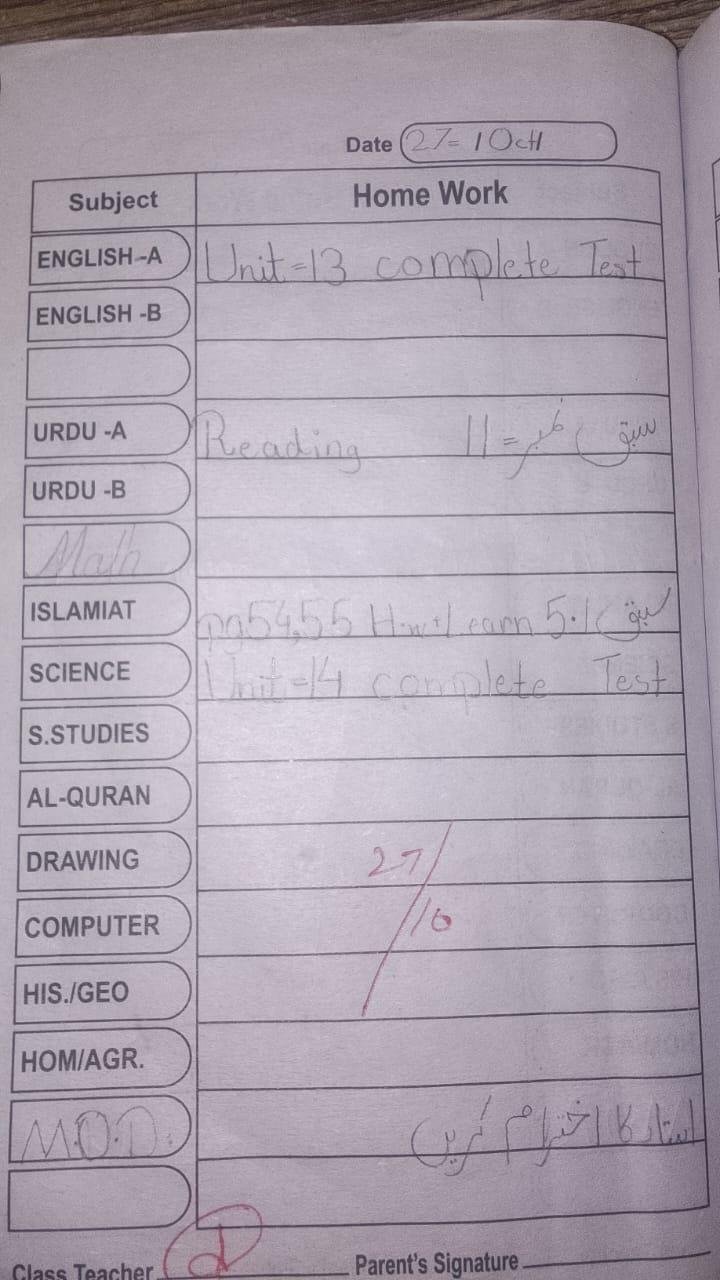 Date 27= 1Oct
Subject Home Work
ENGLISH-A Unit=13 complete Test
ENGLISH -B
URDU -A Reading سبق نمبر = 11
URDU -B
Math
ISLAMIAT pg54,55 H.w+Learn 5.1 سبق
SCIENCE Unit=14 complete Test
S.STUDIES
AL-QURAN
DRAWING 27/
COMPUTER /10
HIS./GEO
HOM/AGR.
M.O.D. استاد کا احترام کریں
Class Teacher Parent's Signature